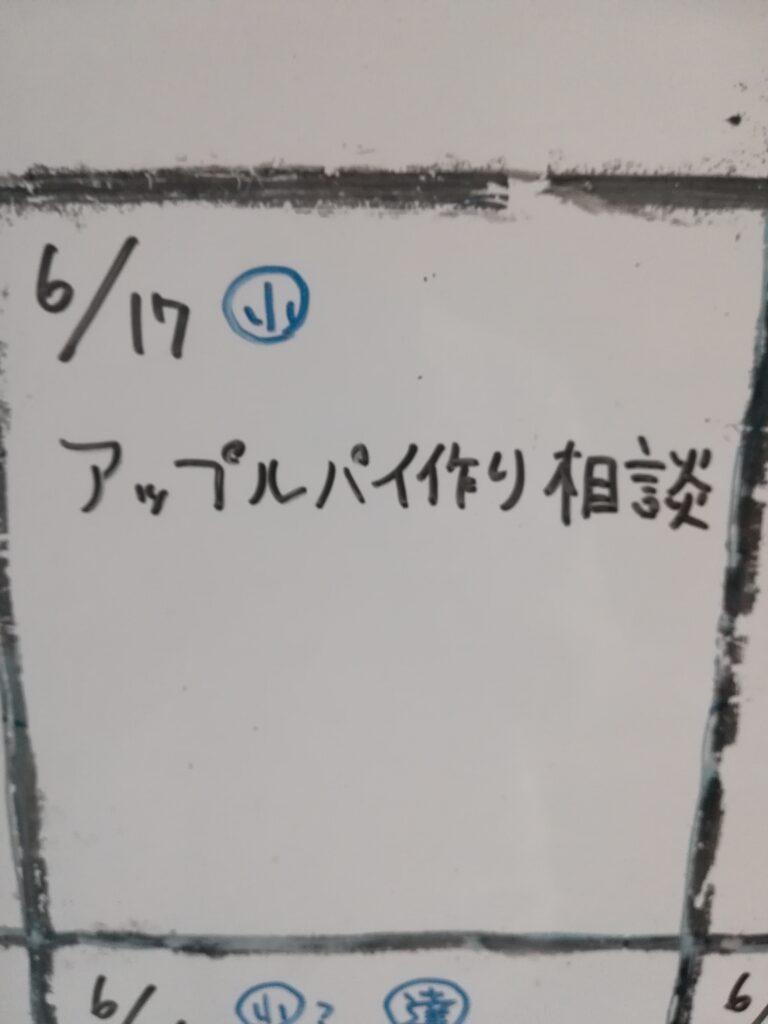 6/17 ㊤小
アップルパイ作り相談
6/ 小 達
6/